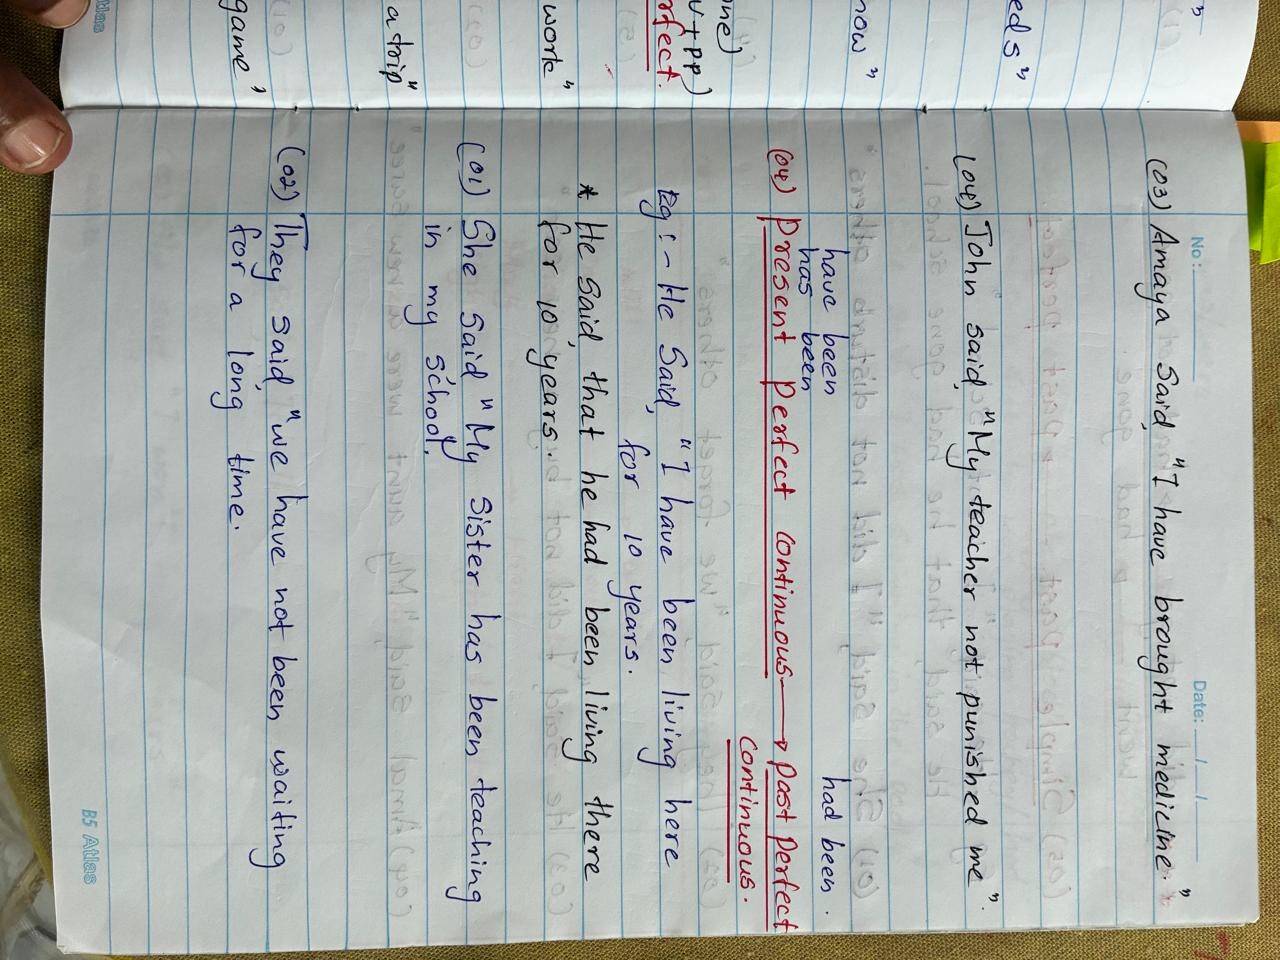 No: Date: / /
(03) Amaya said, "I have brought medicine."
(04) John said, "My teacher not punished me".
have been had been.
has been
(04) Present Perfect continuous → Past Perfect
continuous.
Eg :- He Said, "I have been living here
for 10 years.
* He Said, that he had been living there
for 10 years.
(01) She Said "My Sister has been teaching
in my School.
(02) They said, "we have not been waiting
for a long time.
B5 Atlas
eds"
now"
one)
v+pp)
rfect.
work"
a trip"
game"
Atlas